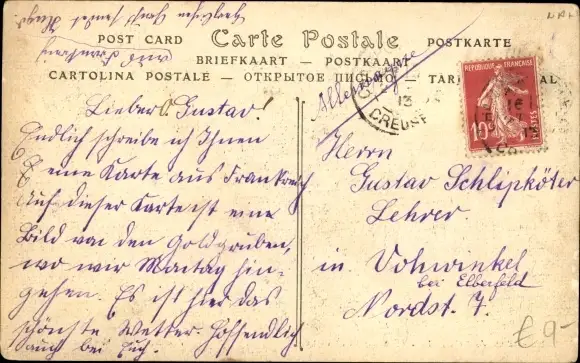 Herzlichen Gruß sendet Hugo
und
POST CARD
Carte Postale
POSTKARTE
BRIEFKAART — POSTKAART
CARTOLINA POSTALE — ОТКРЫТОЕ ПИСЬМО — TAR AL
Allemagne
13
CREUSE
RÉPUBLIQUE FRANÇAISE
10
POSTES
16
13
Lieber G. Gustav!
Endlich schreibe ich Ihnen
eine Karte aus Frankreich
Auf dieser Karte ist eine
Bild von den Goldgruben,
wo wir Montag hin-
gehen. Es ist hier das
schönste Wetter. Hoffendlich
auch bei Euch.
Herrn
Gustav Schlipköter
Lehrer
in Vohwinkel
bei Elberfeld
Nordst. 7.
€ 9-